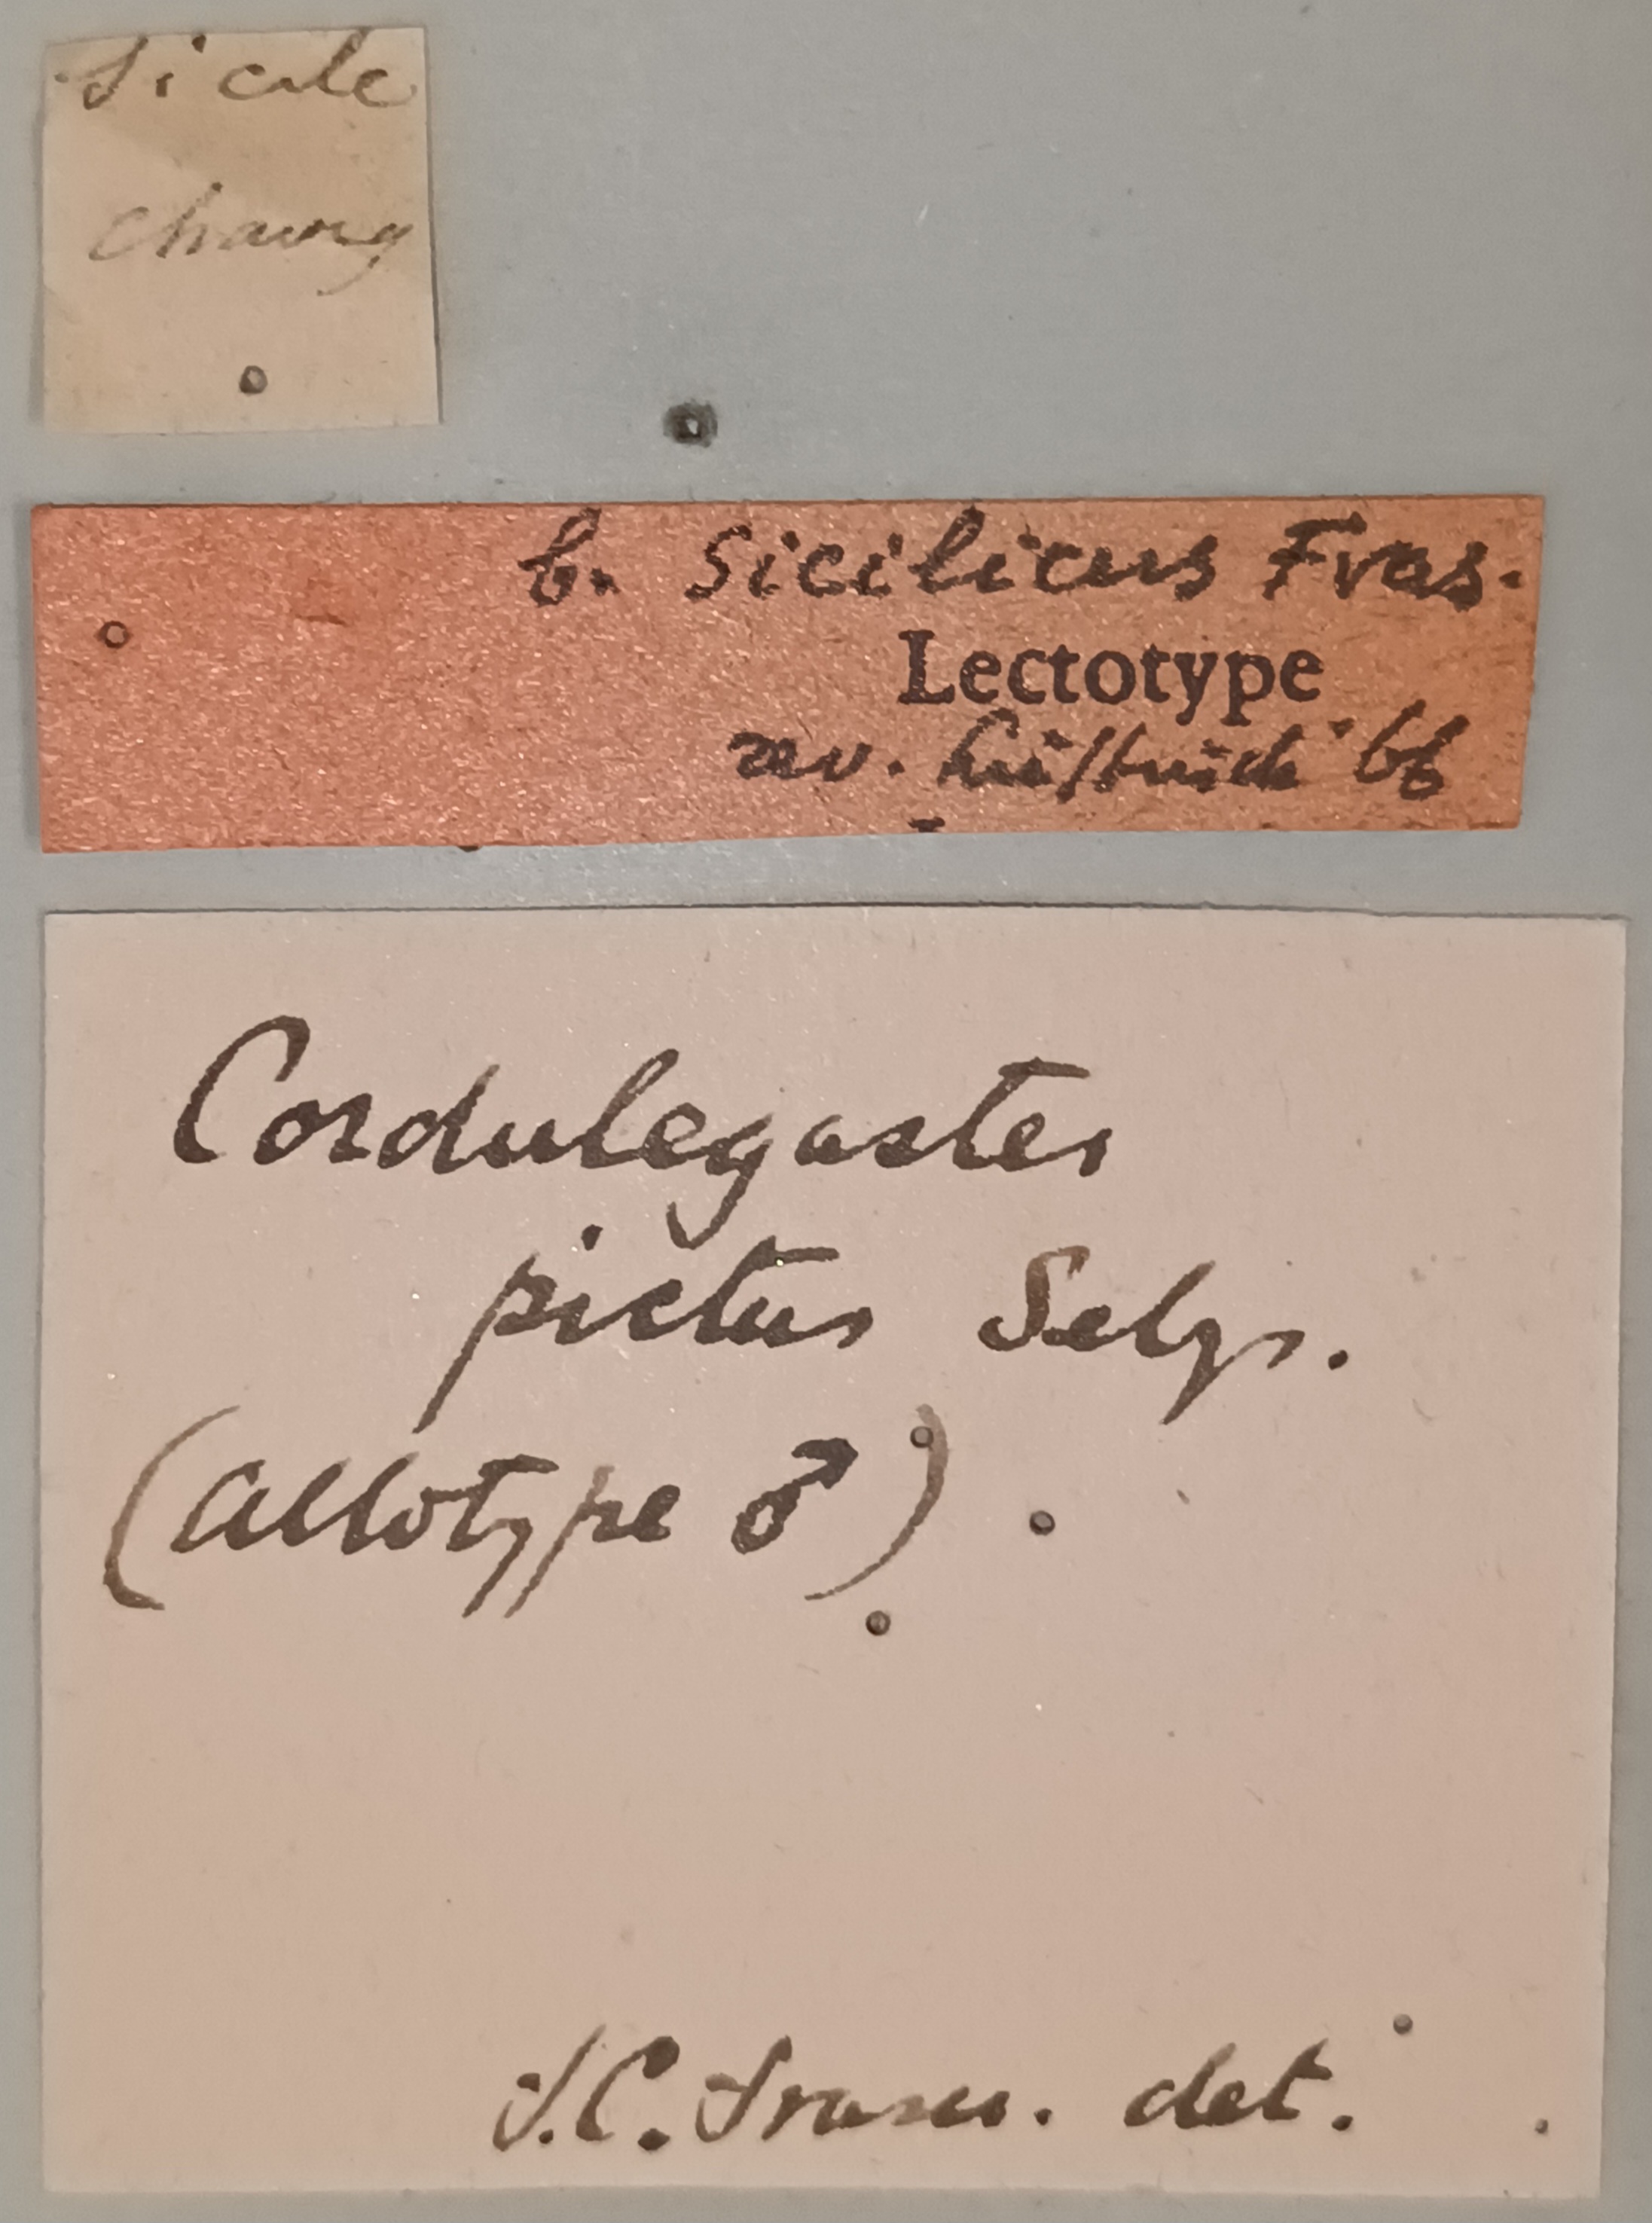 Sicile
b. Sicilicus Fras.
Lectotype
rev.
Cordulegaster
pictus Selys.
(allotype ♂).
F.C. Fraser. det.